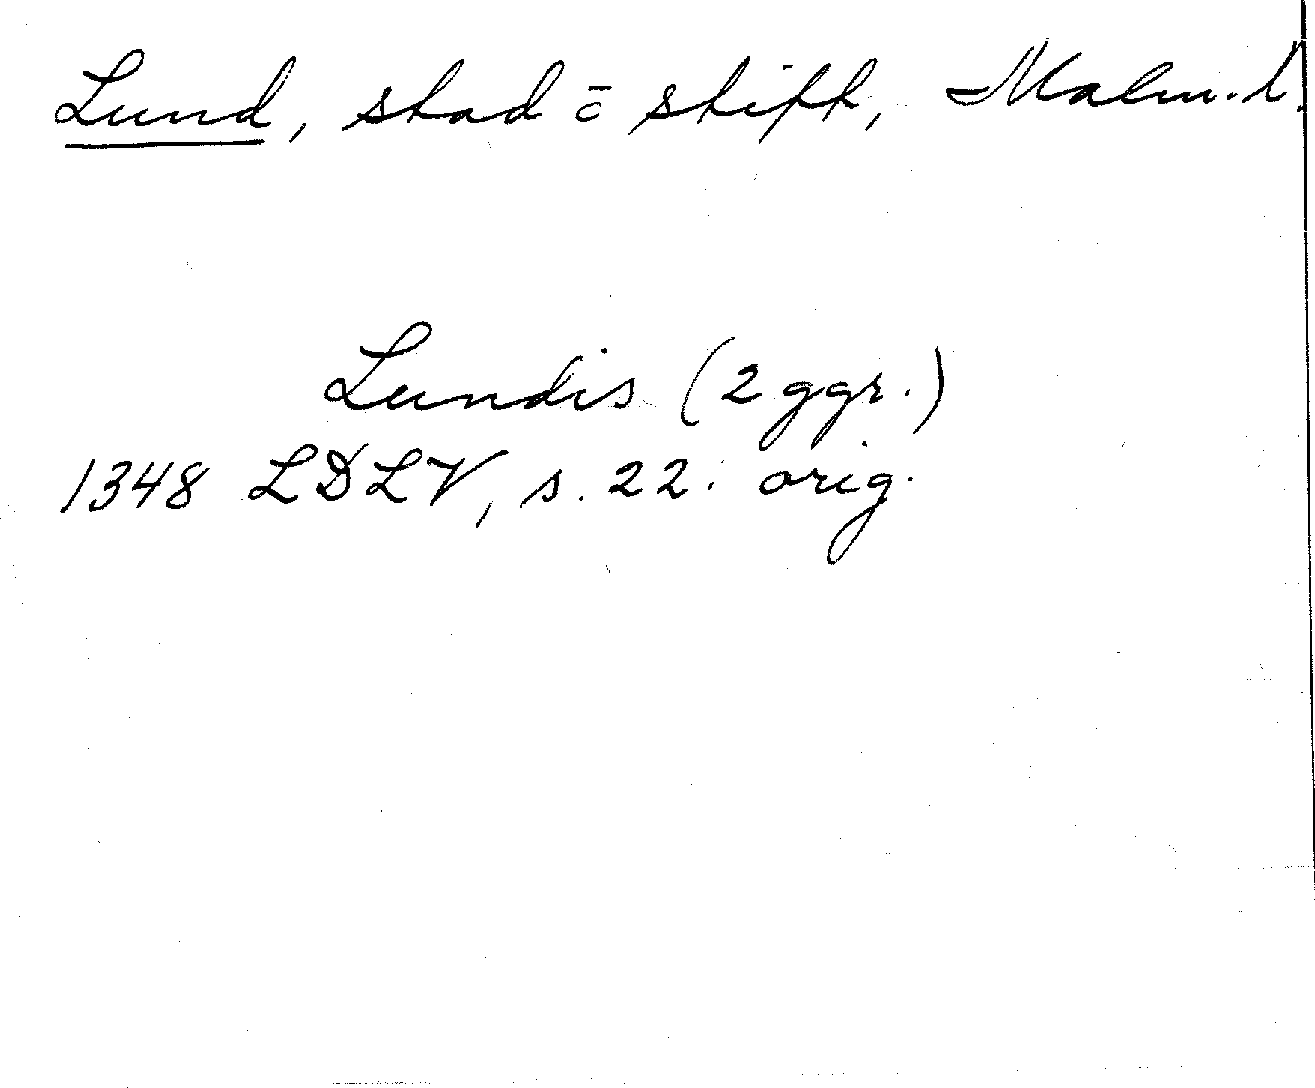 Lund, stad o stift, Malm.l.
Lundis (2 ggr.)
1348 LDLV, s. 22. orig.